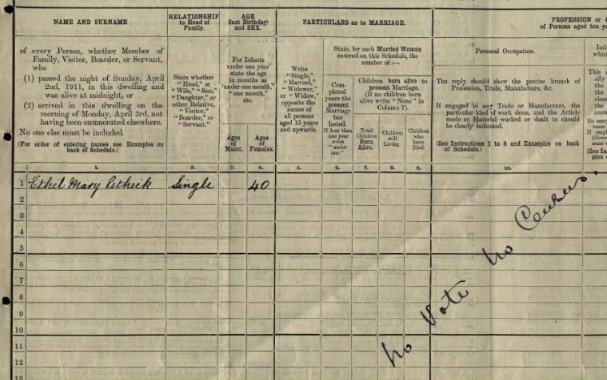 NAME AND SURNAME
RELATIONSHIP
to Head of
Family.
AGE
(last Birthday)
and SEX.
PARTICULARS as to MARRIAGE.
PROFESSION or
of Persons aged ten y
of every Person, whether Member of
Family, Visitor, Boarder, or Servant,
who
(1) passed the night of Sunday, April
2nd, 1911, in this dwelling and
was alive at midnight, or
(2) arrived in this dwelling on the
morning of Monday, April 3rd, not
having been enumerated elsewhere.
No one else must be included.
(For order of entering names see Examples on
back of Schedule.)
State whether
"Head," or
"Wife," "Son,"
"Daughter," or
other Relative,
"Visitor,"
"Boarder," or
"Servant."
For Infants
under one year
state the age
in months as
"under one
month," "one
month," etc.
Ages
of
Males.
Ages
of
Females.
Write
"Single,"
"Married,"
"Widower,"
or "Widow,"
opposite the
names of
all persons
aged 15 years
and upwards.
State, for each Married Woman
entered on this Schedule, the
number of :—
Com-
pleted
years the
present
Marriage
has
lasted.
If less than
one year
write
"under
one."
Children born alive to
present Marriage.
(If no children born
alive write "None" in
Column 7).
Total
Children
Born
Alive.
Children
still
Living.
Children
who
have
Died.
Personal Occupation.
The reply should show the precise branch of
Profession, Trade, Manufacture, &c.
If engaged in any Trade or Manufacture, the
particular kind of work done, and the Article
made or Material worked or dealt in should
be clearly indicated.
(See Instructions 1 to 8 and Examples on back
of Schedule.)
1. 2. 3. 4. 5. 6. 7. 8. 9. 10.
1 Ethel Mary Pethick Single 40
2
3
4
5
6
7
8
9
10
11
12
No Vote no Census.